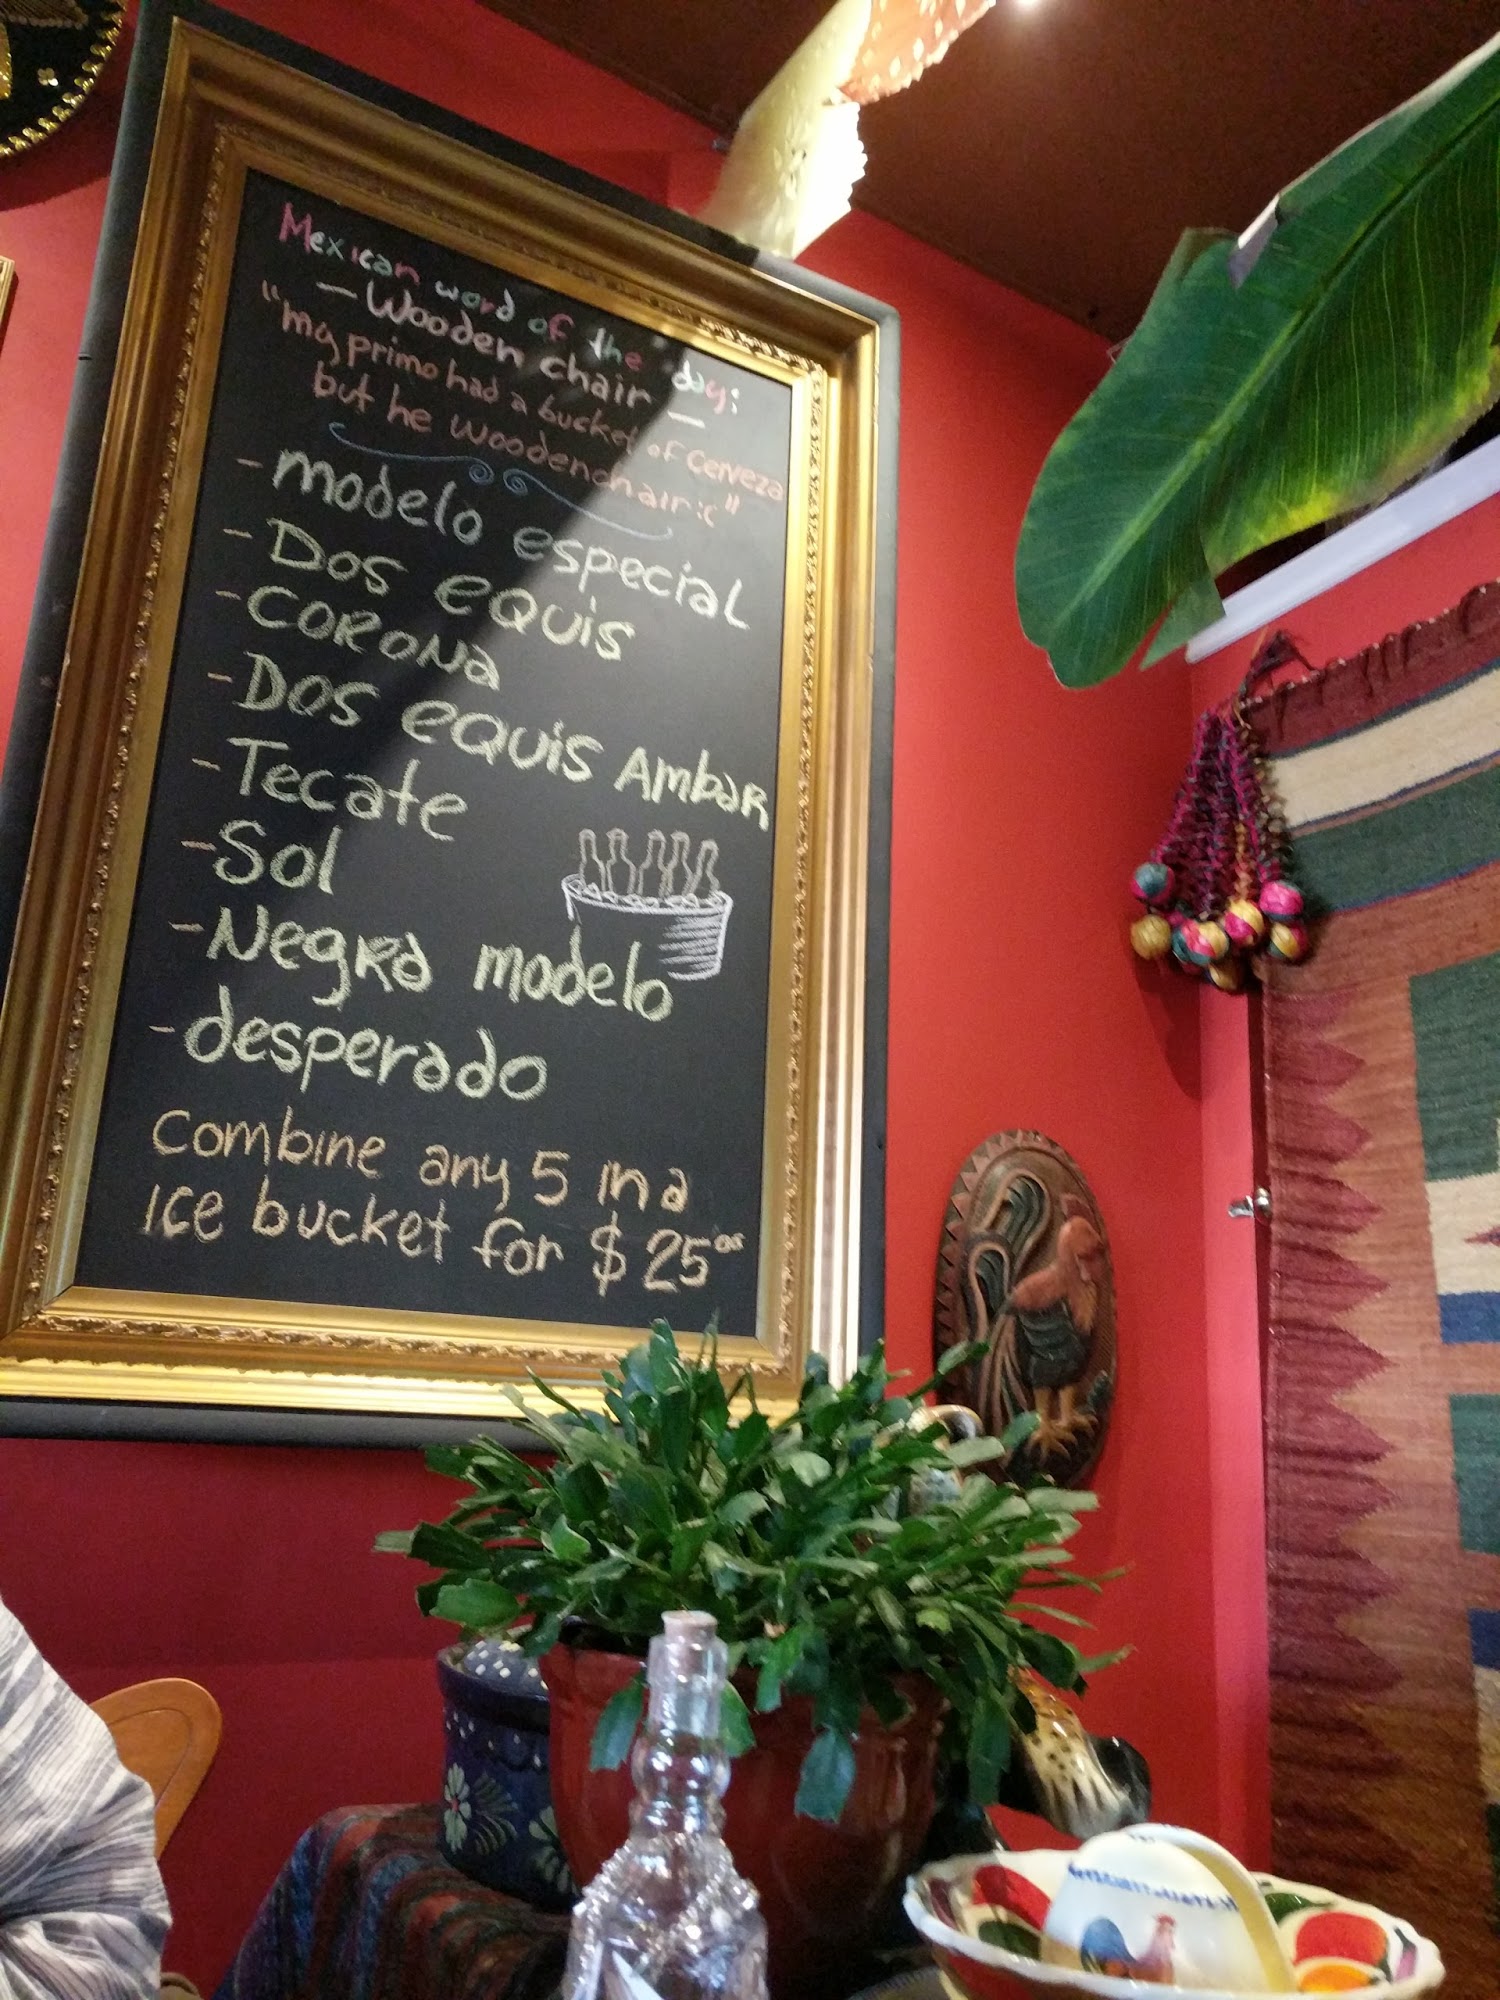 Mexican word of the day:
- Wooden chair -
"my primo had a bucket of cerveza
but he woodenchair :c"
- modelo especial
- Dos equis
- corona
- Dos equis Ambar
- Tecate
- Sol
- Negra modelo
- desperado
Combine any 5 in a
ice bucket for $25⁰⁰